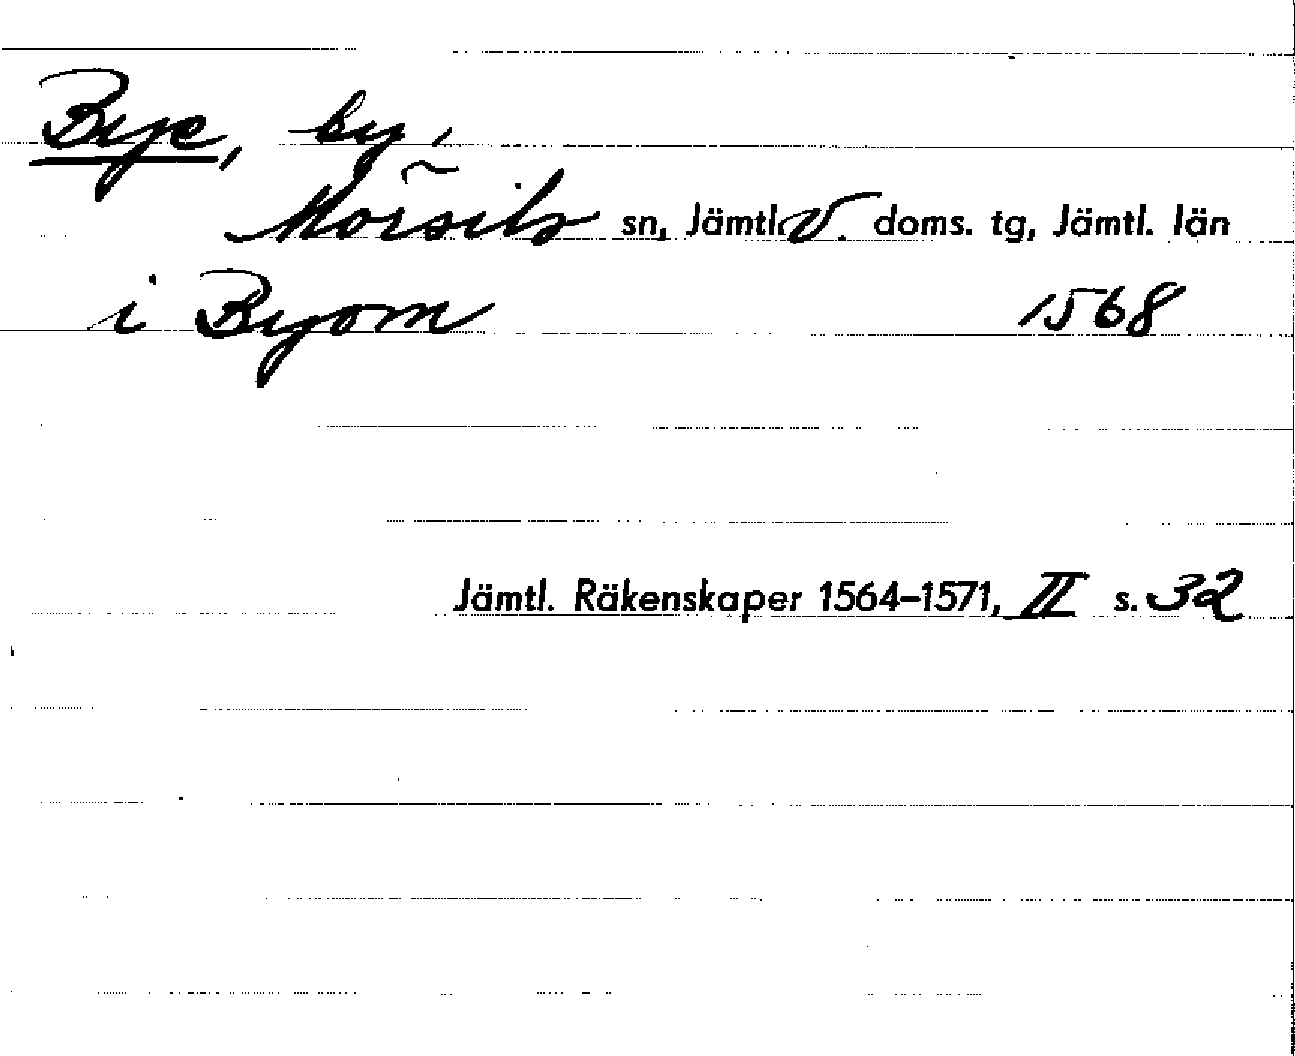 Bye, by,
Mörsils sn, Jämtl. V. doms. tg, Jämtl. län
i Byom 1568
Jämtl. Räkenskaper 1564–1571, II s. 32